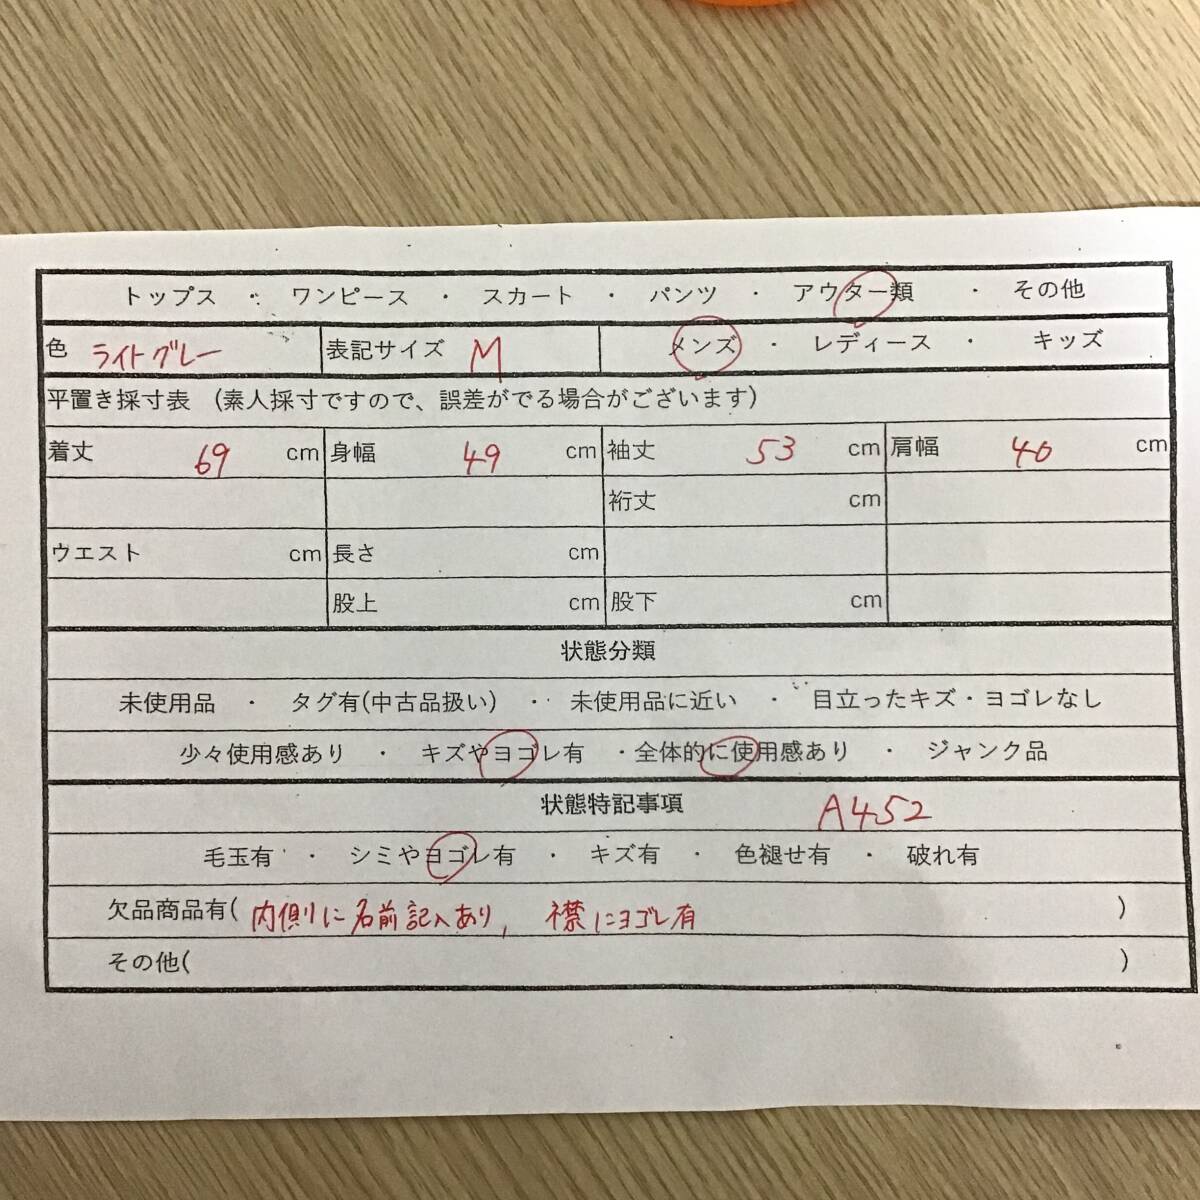 トップス ・ ワンピース ・ スカート ・ パンツ ・ アウター類 ・ その他
色 ライトグレー 表記サイズ M メンズ ・ レディース ・ キッズ
平置き採寸表 (素人採寸ですので、誤差がでる場合がございます)
着丈 69 cm 身幅 49 cm 袖丈 53 cm 肩幅 40 cm
裄丈 cm
ウエスト cm 長さ cm
股上 cm 股下 cm
状態分類
未使用品 ・ タグ有(中古品扱い) ・ 未使用品に近い ・ 目立ったキズ・ヨゴレなし
少々使用感あり ・ キズやヨゴレ有 ・全体的に使用感あり ・ ジャンク品
状態特記事項 A452
毛玉有 ・ シミやヨゴレ有 ・ キズ有 ・ 色褪せ有 ・ 破れ有
欠品商品有( 内側に名前記入あり, 襟にヨゴレ有 )
その他( )